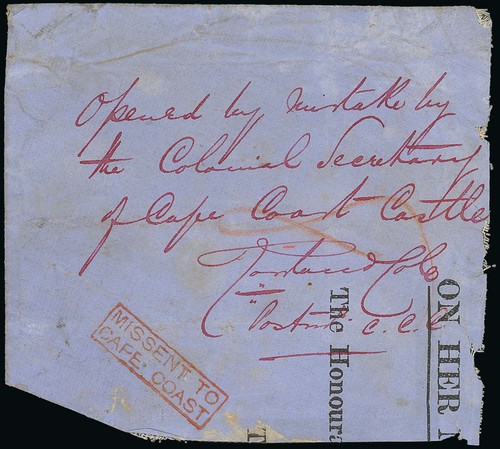 Opened by mistake by
the Colonial Secretary
of Cape Coast Castle
Cole
Postmr C.C.C
MISSENT TO
CAPE COAST
ON HER
The Honoura
T